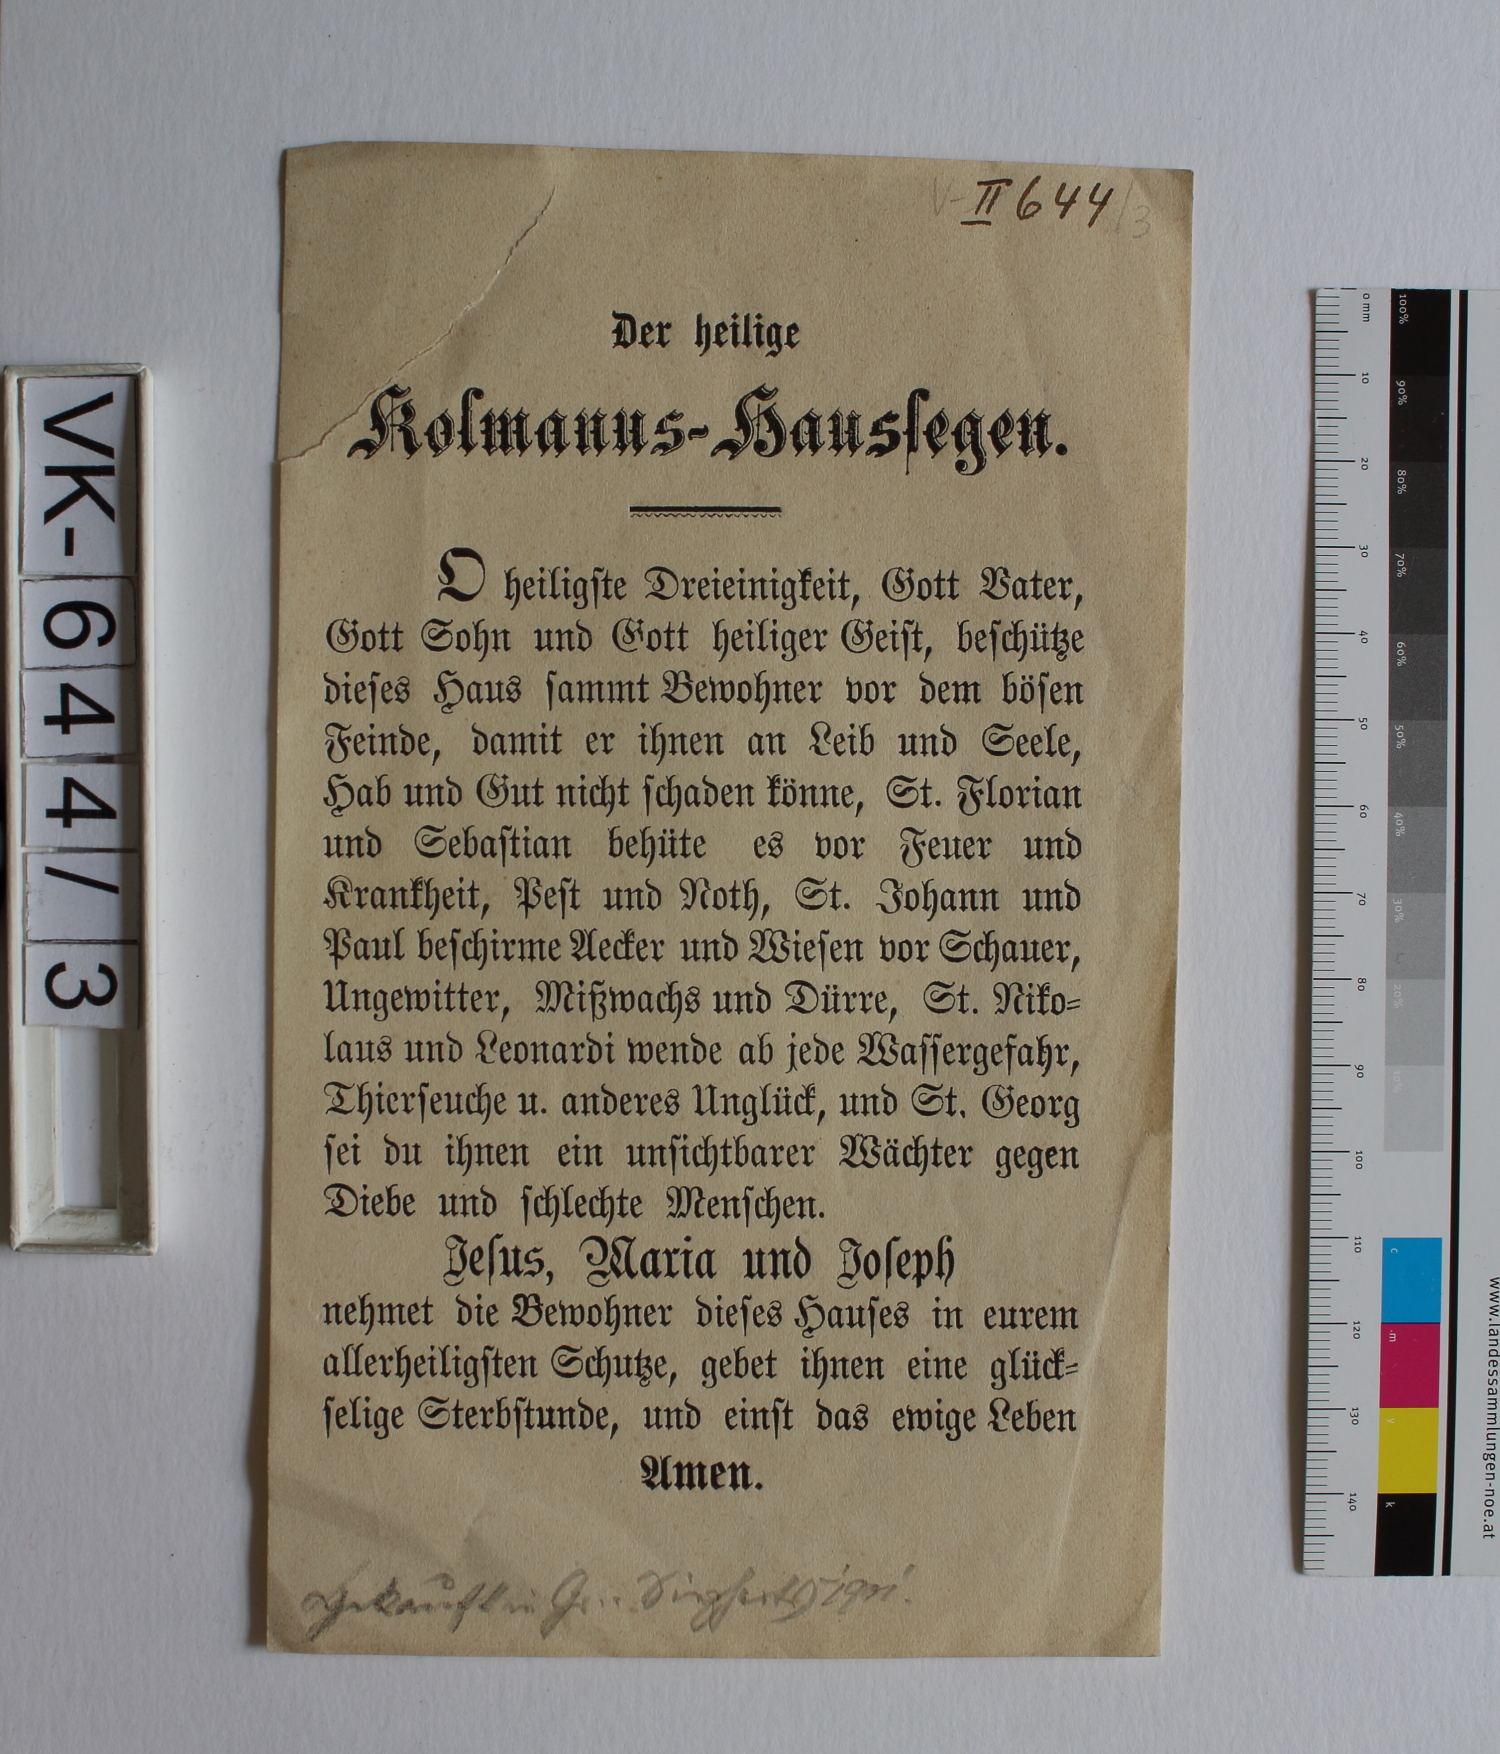 V-II 644/3
Der heilige
Kolmanus-Haussegen.
O heiligste Dreieinigkeit, Gott Vater,
Gott Sohn und Gott heiliger Geist, beschütze
dieses Haus sammt Bewohner vor dem bösen
Feinde, damit er ihnen an Leib und Seele,
Hab und Gut nicht schaden könne, St. Florian
und Sebastian behüte es vor Feuer und
Krankheit, Pest und Noth, St. Johann und
Paul beschirme Aecker und Wiesen vor Schauer,
Ungewitter, Mißwachs und Dürre, St. Niko=
laus und Leonardi wende ab jede Wassergefahr,
Thierseuche u. anderes Unglück, und St. Georg
sei du ihnen ein unsichtbarer Wächter gegen
Diebe und schlechte Menschen.
Jesus, Maria und Joseph
nehmet die Bewohner dieses Hauses in eurem
allerheiligsten Schutze, gebet ihnen eine glück=
selige Sterbstunde, und einst das ewige Leben
Amen.
Gekauft in
VK-644/3
0 mm
10
20
30
40
50
60
70
80
90
100
110
120
130
140
100%
90%
80%
70%
60%
50%
40%
30%
20%
10%
c
m
y
k
www.landessammlungen-noe.at